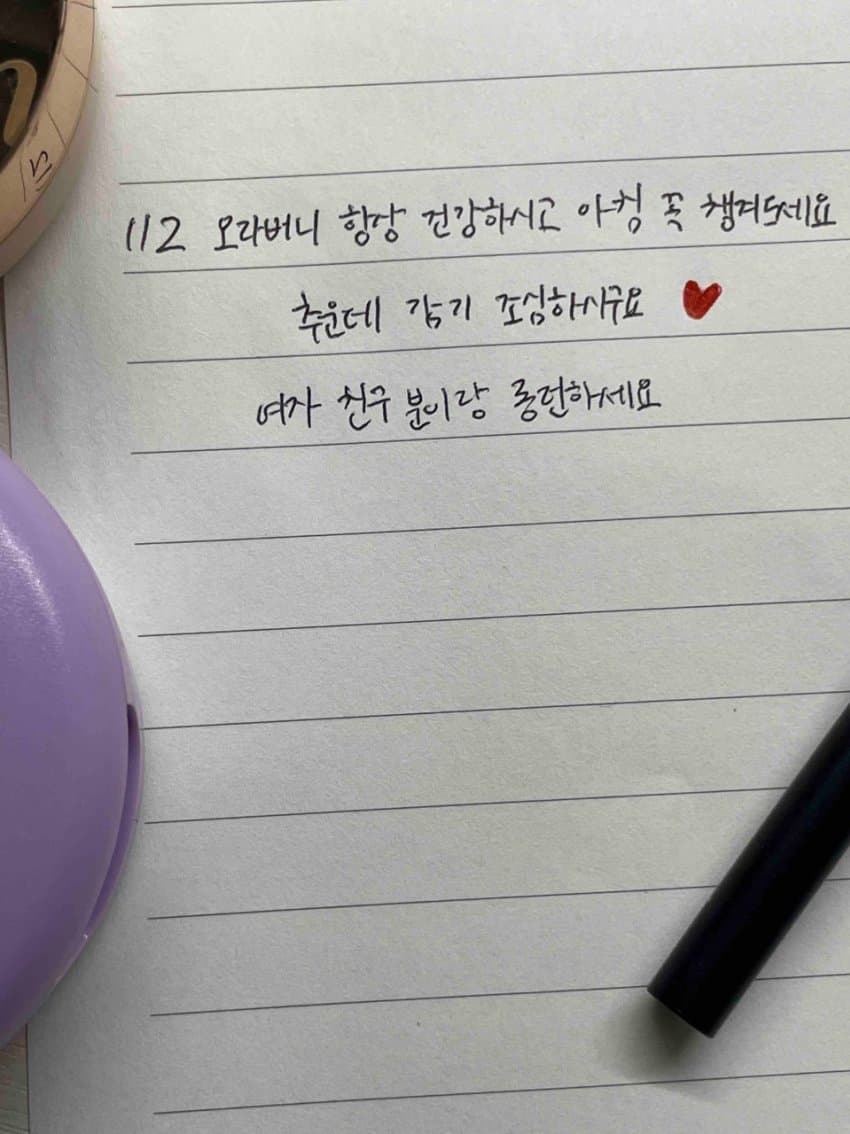 112 오라버니 항상 건강하시고 아침 꼭 챙겨드세요
추운데 감기 조심하시구요 ♥
여자 친구 분이랑 롱런하세요